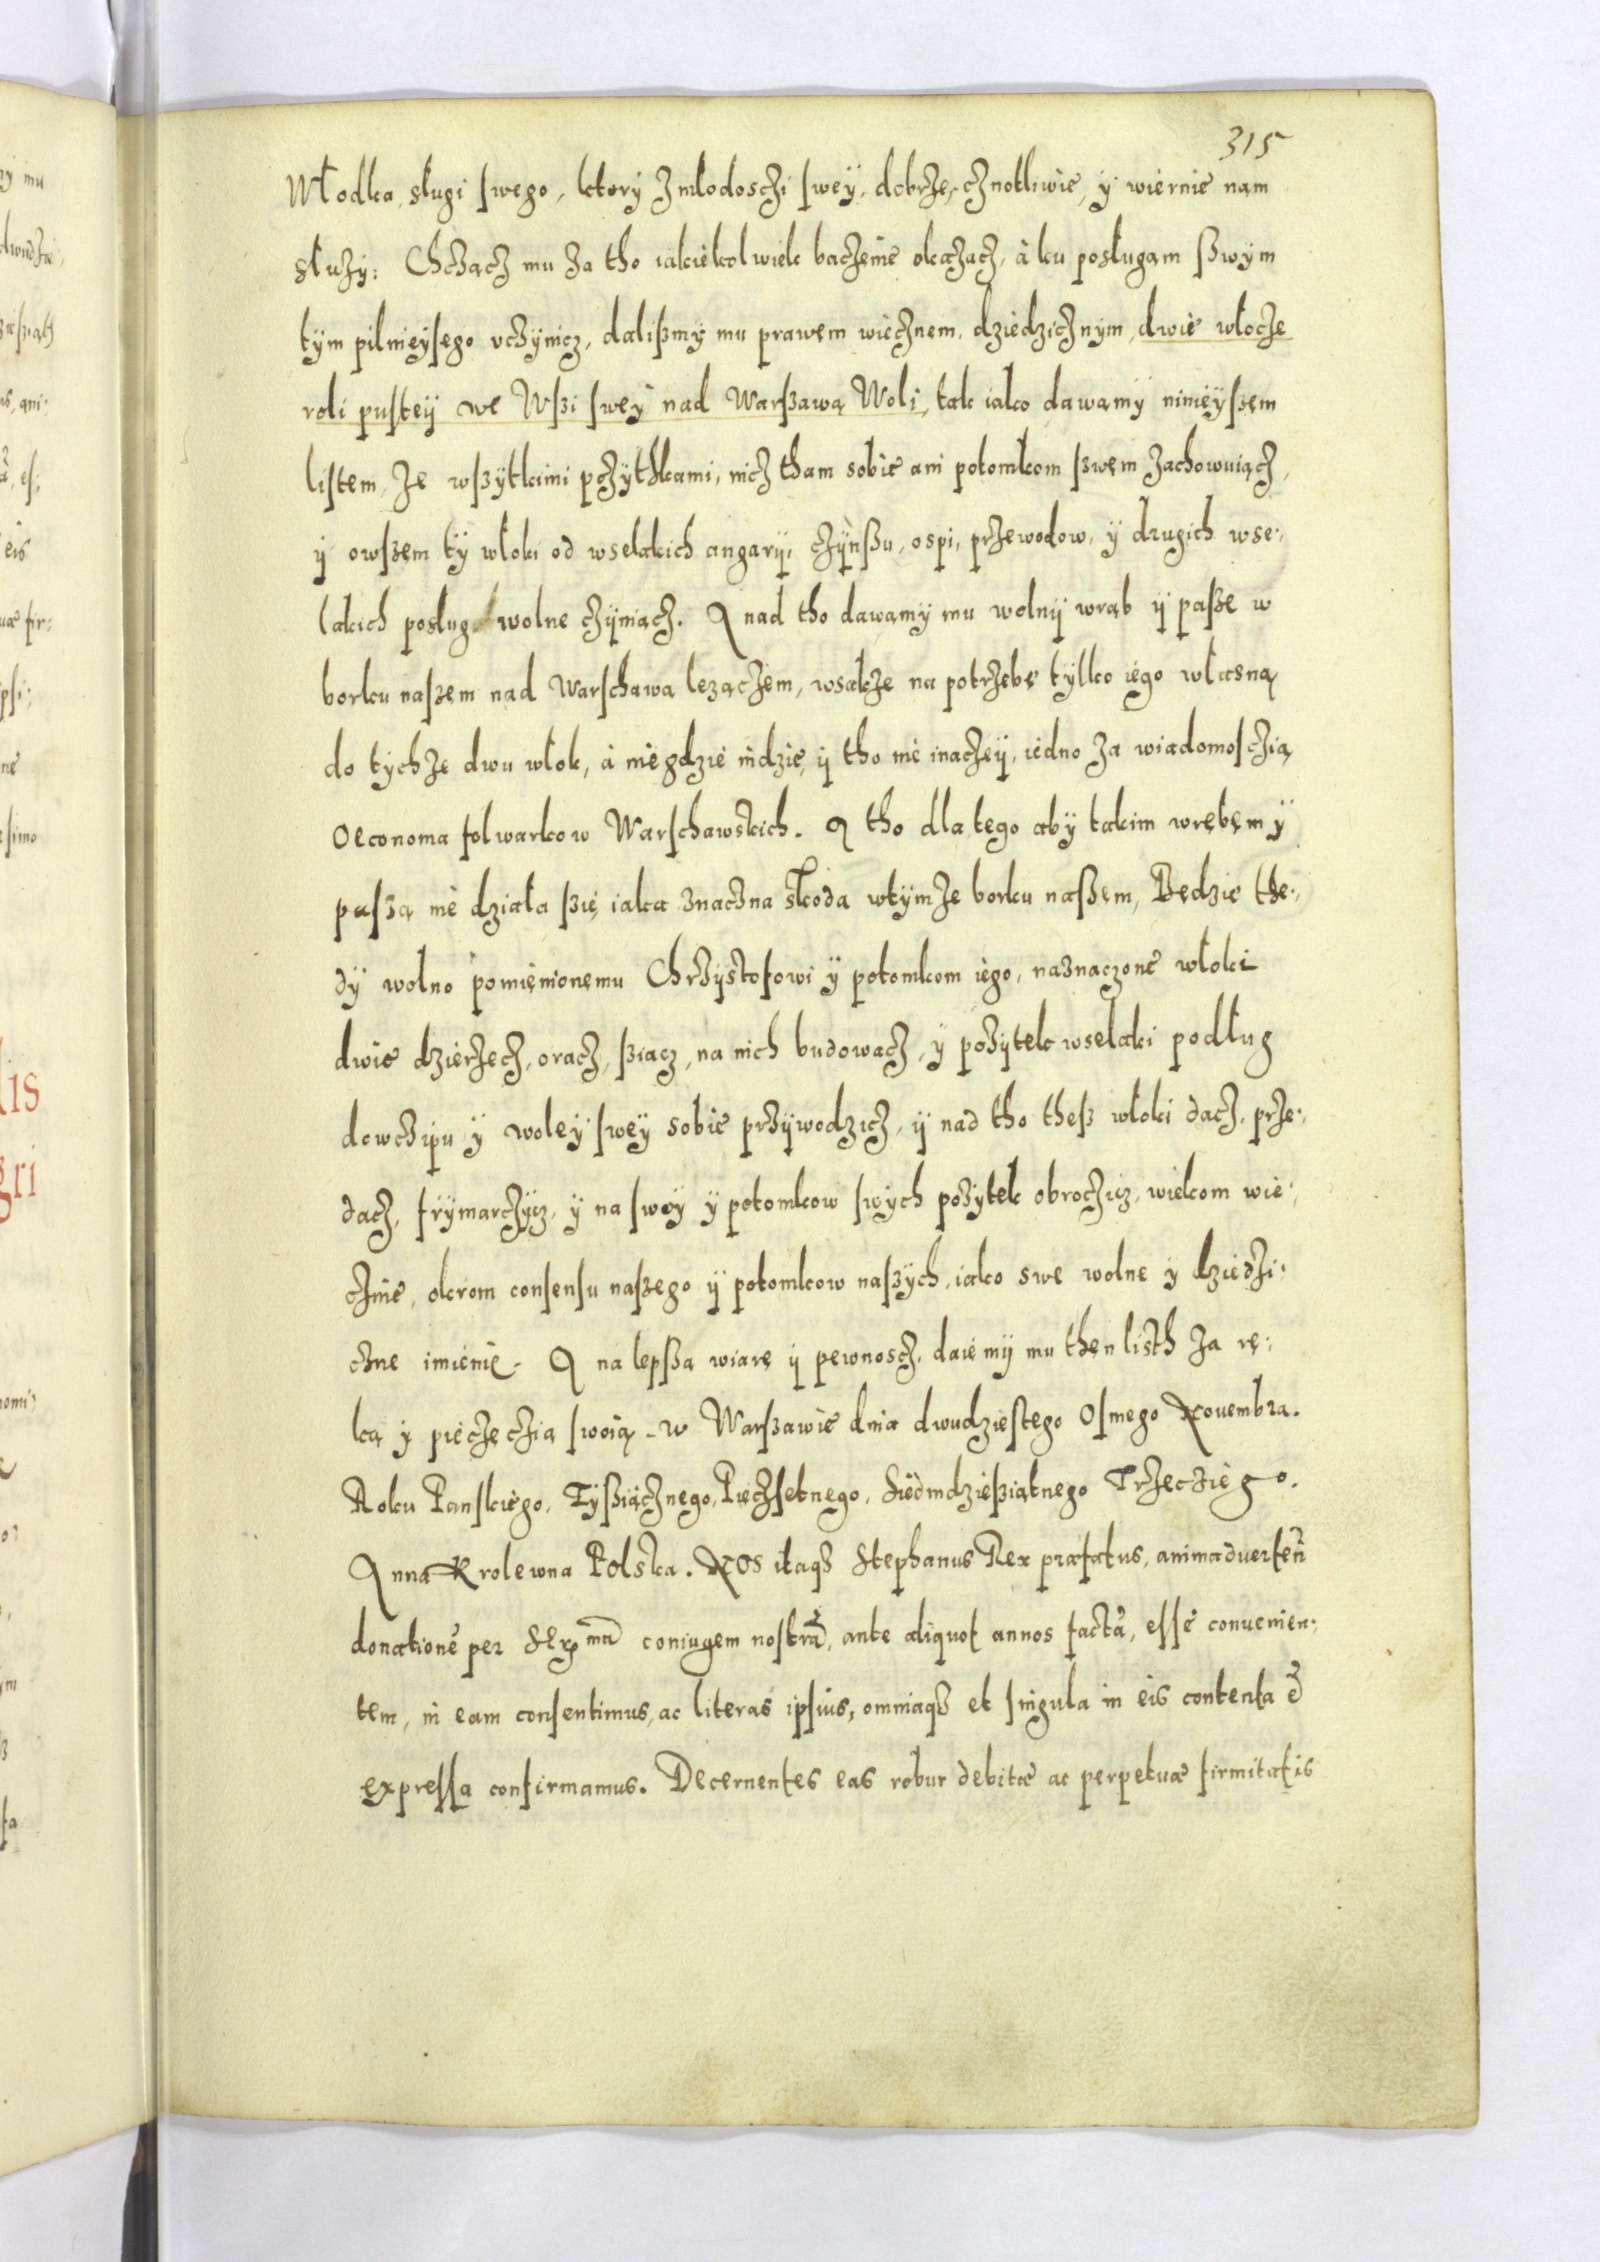 315
Włodka, sługi swego, ktory z młodosczi swey, dobrze, cznotliwie, y wiernie nam
służy: Chcząc mu za tho iakiekolwiek baczenie okazacz, à ku posługam szwym
tym pilnieysego vczynicz, daliszmy mu prawem wiecznem, dziedzicznym, dwie włocze
roli pustey we Wszi swey nad Warszawą Woli, tak iako dawamy ninieyszem
listem, ze wszytkimi pożythkami, nicz tham sobie ani potomkom szwem zachowuiącz,
y owszem ty włoki od wselakich angaryi, czynszu, ospi, przewodow, y drugich wse:
lakich posług wolne czyniącz. A nad tho dawamy mu wolny wrąb y pasze w
borku naszem nad Warschawą lezączem, wsakze na potrzebę tylko iego własną
do tychze dwu włok, à niegdzie indzie, y tho nie inaczey, iedno za wiadomosczią
Oeconoma folwarkow Warschawskich. A tho dla tego aby takim wrębem y
paszą nie działa szię iaka znaczna skoda wtymze borku naszem, Będzie the:
dy wolno pomienionemu Chrzystofowi y potomkom iego, naznaczone włoki
dwie dzierzecz, oracz, sziacz, na nich budowacz, y pożytek wselaki podług
dowczipu y woley swey sobie przywodzicz, y nad tho thesz włoki dacz, prze:
dacz, frymarczycz, y na swoy y potomkow swych pożytek obroczicz, wiekom wie:
cznie, okrom consensu naszego y potomkow naszych, iako swe wolne y dziedzi:
czne imienie. A na lepsza wiarę y pewnoscz, daiemy mu then listh za rę:
ką y pieczeczią swoią. w Warszawie dnia dwudziestego Osmego Nouembra.
Roku Panskiego, Tysziącznego, Pięczsetnego, Siedmdziesziątnego Trzecziego.
Anna Krolewna Polska. Nos itaqȝ Stephanus Rex præfatus, animaduerteñ
donationē per Serᵐᵃ̄ coniugem nostrā, ante aliquot annos factā, esse conuenien:
tem, in eam consentimus, ac literas ipsius, omniaqȝ et singula in eis contenta ē
expressa confirmamus. Decernentes eas robur debitæ ac perpetuæ firmitatis